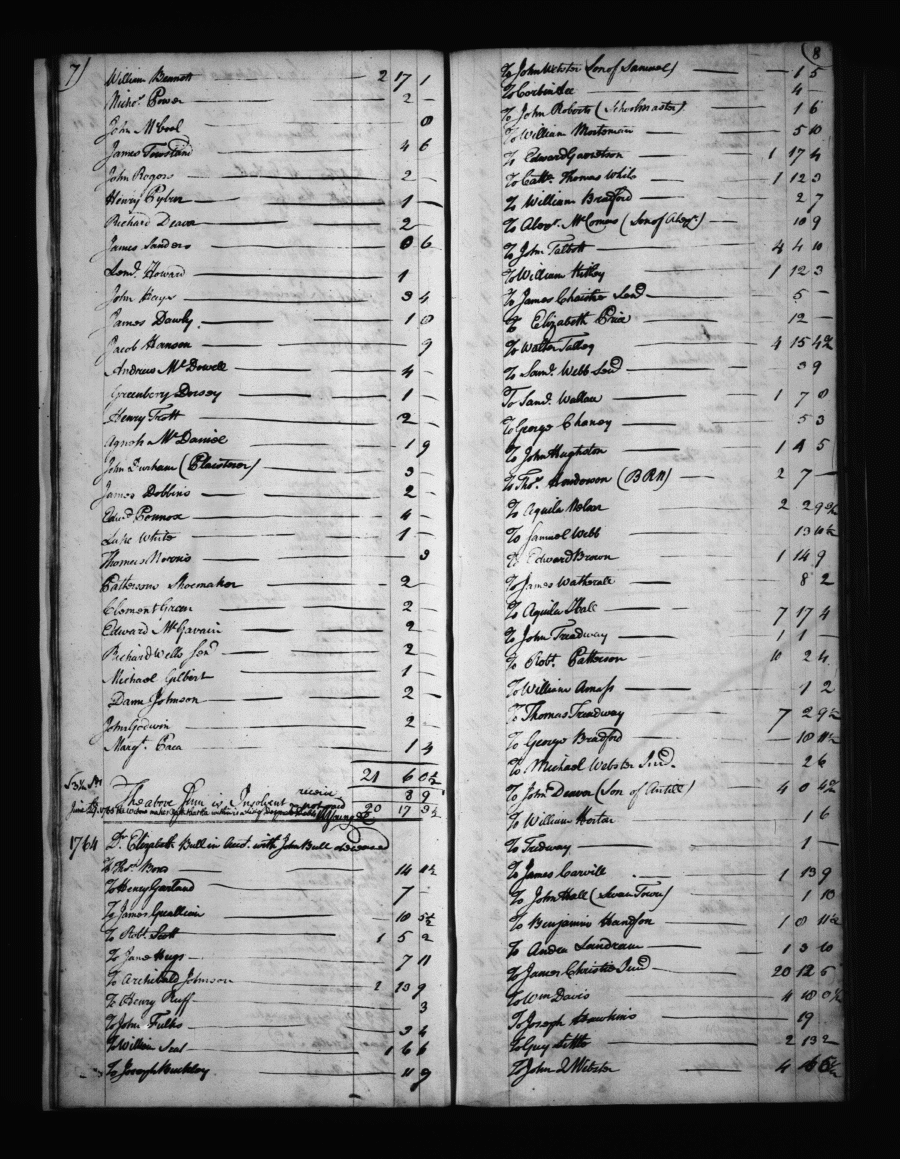 7)
William Bennett 2 17 1
Nichos. Power 2 –
John McCool 8
James 4 6
John Rogers 2 –
Henry 1 –
Richard Deaver 2
James Sanders 0 6
Lemd. Howard 1
John Hays 3 4
James Dawly 1 0
Jacob Hanson 9
Andrew McDowell 4 –
Greenbery Dorsey 1 –
Henry Trott 2 –
Agness McDaniel 1 9
John Durham (Plaisterer) 3 –
James Dobbins 2 –
Edwd. 4 –
Luke White 1 –
Thomas Morris 3
Pattersons Shoemaker 2 –
Clement Green 2
Edward McGavain 2 –
Richard Wells Senr. 2 –
Michael Gilbert 1 –
Dann Johnson 2 –
John Godwin 2 –
Margt. 1 4
21 6
The above is Insolvent 8 9
20 17
1764 Dr. Elizabeth Bull in Acct. with John Bull Deceased
To Thos. Bond 14
To Henry Garland 7 –
To James 10 5½
To Robt. Scott 1 5 2
To Jane Hugs 7 11
To Archibald Johnson 2 13 9
To Henry Ruff 3
To John Fulks 3 4
To William 1 6 6
To Joseph 11 9
8
To John Webster (Son of Samuel) 1 5
To Corbin Lee 4 –
To John Roberts (Schoolmaster) 1 6
To William 5 10
To Edward 1 17 4
To Capt. Thomas White 1 12 3
To William Bradford 2 7
To Alexr. McComas (Son of Alexr.) 10 9
To John Talbott 4 4 10
To William 1 12 3
To James Christie Senr. 5 –
To Elizabeth Price 12 –
To Walter Talley 4 15
To Saml. Webb Senr. 3 9
To Saml. Wallace 1 7 0
To George Chaney 5 3
To John Hughston 1 4 5
To Thos. (BRN) 2 7 –
To Aquila 2 2
To Samuel Webb 13 10½
To Edward Brown 1 14 9
To James 8 2
To Aquila Hall 7 17 4
To John Treadway 1 1 –
To Robt. Patterson 10 2 4
To William Amass 1 2
To Thomas Treadway 7 2 9½
To George Bradford 18 11½
To Michael Webster Junr. 2 6
To John Deaver (Son of Antill) 4 0
To William Horton 1 6
To Tredway 1 –
To James Carvill 1 13 9
To John Hall (Swan Town) 1 10
To Benjamin Hanson 1 0 11½
To Andw. Landrum 1 3 10
To James Christie Junr. 20 12 6
To Wm Davis 4 18
To Joseph Hawkins 19
To Guy Little 2 13 2
To John Webster 4